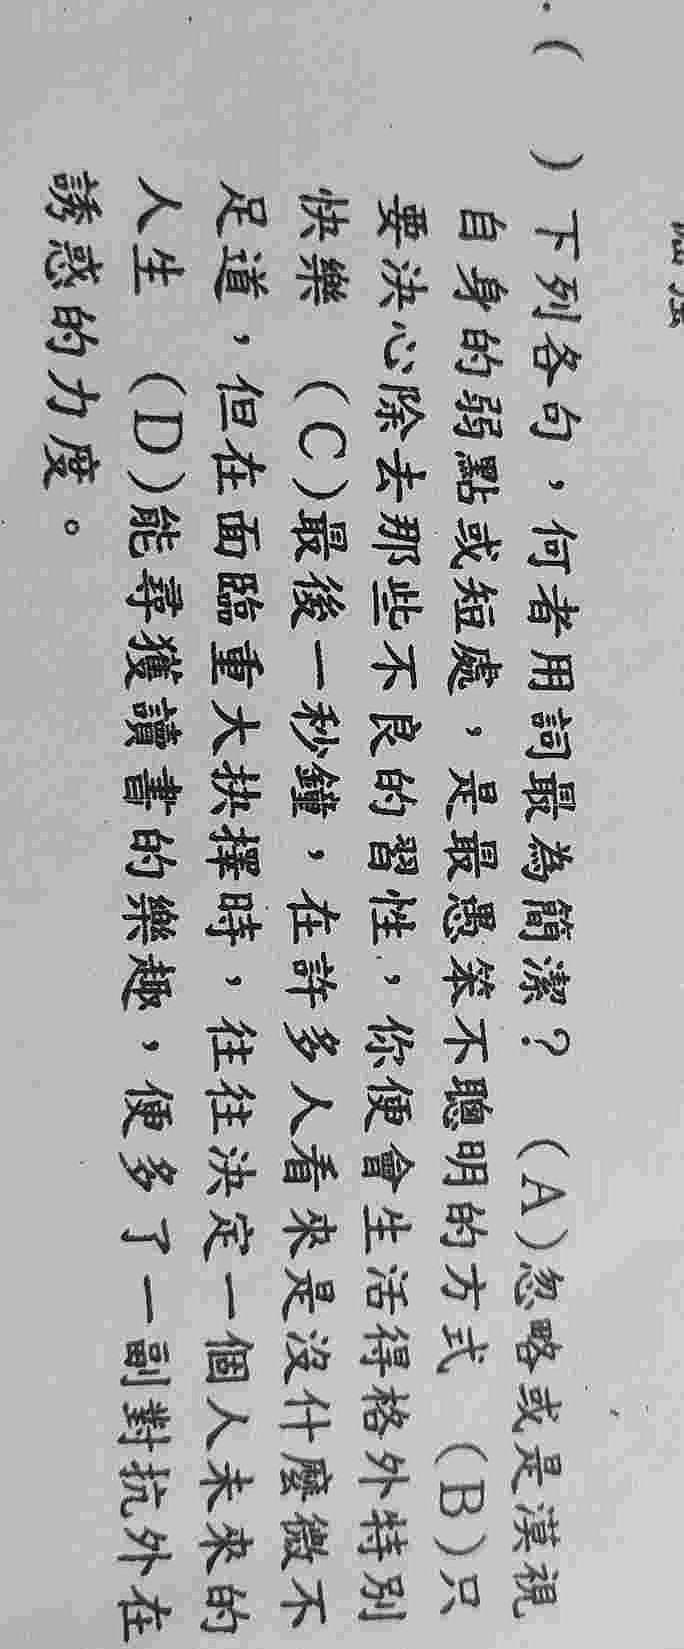 .(　)下列各句，何者用詞最為簡潔？　(A)忽略或是漠視
自身的弱點或短處，是最愚笨不聰明的方式　(B)只
要決心除去那些不良的習性，你便會生活得格外特別
快樂　(C)最後一秒鐘，在許多人看來是沒什麼微不
足道，但在面臨重大抉擇時，往往決定一個人未來的
人生　(D)能尋獲讀書的樂趣，便多了一副對抗外在
誘惑的力度。